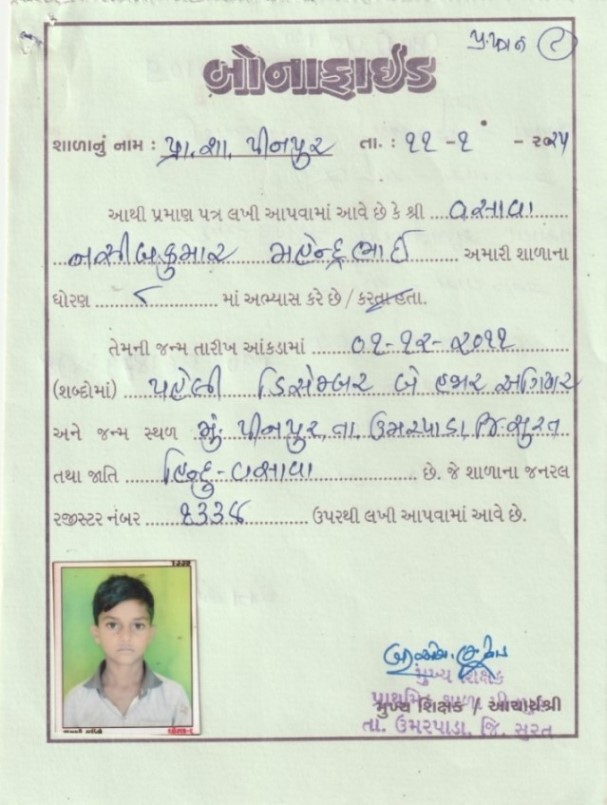 પ્ર.પત્ર ૮
બોનાફાઈડ
શાળાનું નામ : પ્રા. શા. પીનપુર તા. : ૧૧ -૧ - ૨૦૨૫
આથી પ્રમાણ પત્ર લખી આપવામાં આવે છે કે શ્રી વસાવા
નસીબકુમાર મહેન્દ્રભાઈ અમારી શાળાના
ધોરણ ૮ માં અભ્યાસ કરે છે / કરતા હતા.
તેમની જન્મ તારીખ આંકડામાં ૦૧-૧૨-૨૦૧૧
(શબ્દોમાં) પહેલી ડિસેમ્બર બે હજાર અગિયાર
અને જન્મ સ્થળ મું. પીનપુર, તા. ઉમરપાડા, જિ. સુરત
તથા જાતિ હિન્દુ - વસાવા છે. જે શાળાના જનરલ
રજીસ્ટર નંબર ૧૩૩૪ ઉપરથી લખી આપવામાં આવે છે.
મુખ્ય શિક્ષક
પ્રાથમિક શાળા
મુખ્ય શિક્ષક / આચાર્યશ્રી
તા. ઉમરપાડા, જિ. સુરત